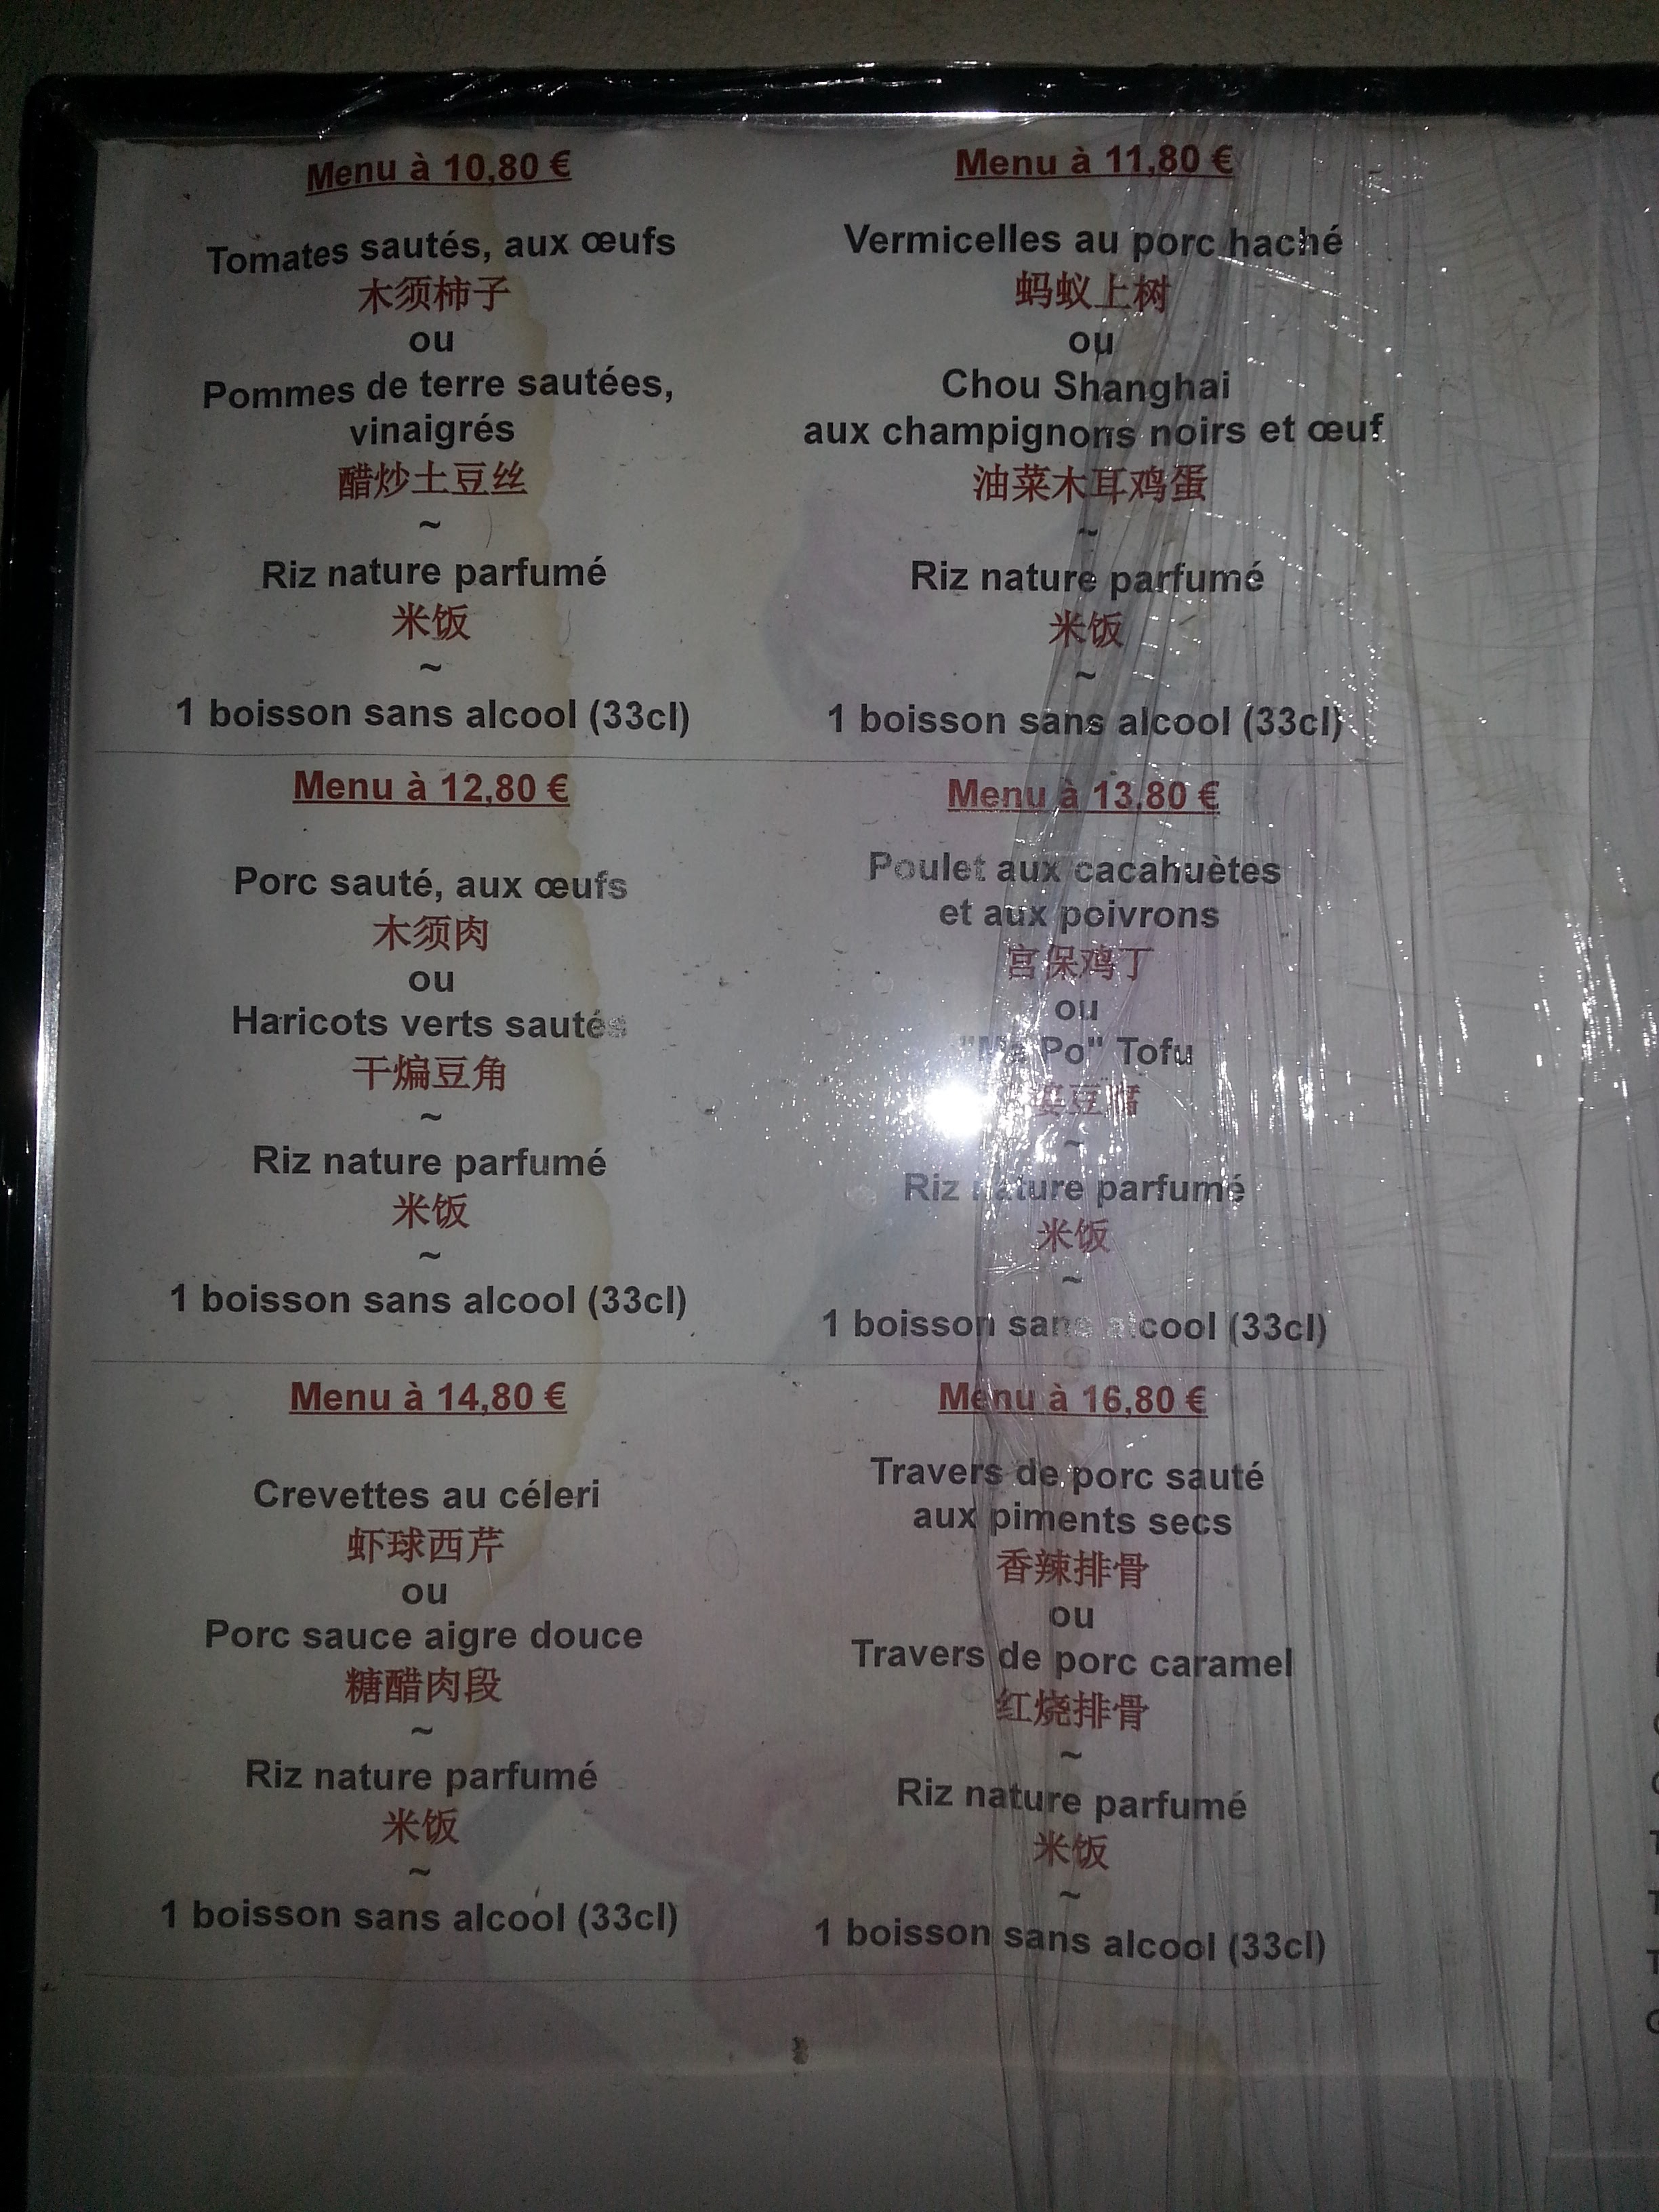 Menu à 10,80 €
Tomates sautés, aux œufs
木须柿子
ou
Pommes de terre sautées,
vinaigrés
醋炒土豆丝
~
Riz nature parfumé
米饭
~
1 boisson sans alcool (33cl)
Menu à 11,80 €
Vermicelles au porc haché
蚂蚁上树
ou
Chou Shanghai
aux champignons noirs et œuf
油菜木耳鸡蛋
~
Riz nature parfumé
米饭
~
1 boisson sans alcool (33cl)
Menu à 12,80 €
Porc sauté, aux œufs
木须肉
ou
Haricots verts sautés
干煸豆角
~
Riz nature parfumé
米饭
~
1 boisson sans alcool (33cl)
Menu à 13,80 €
Poulet aux cacahuètes
et aux poivrons
宫保鸡丁
ou
"Ma Po" Tofu
婆豆腐
~
Riz nature parfumé
米饭
~
1 boisson sans alcool (33cl)
Menu à 14,80 €
Crevettes au céleri
虾球西芹
ou
Porc sauce aigre douce
糖醋肉段
~
Riz nature parfumé
米饭
~
1 boisson sans alcool (33cl)
Menu à 16,80 €
Travers de porc sauté
aux piments secs
香辣排骨
ou
Travers de porc caramel
红烧排骨
~
Riz nature parfumé
米饭
~
1 boisson sans alcool (33cl)